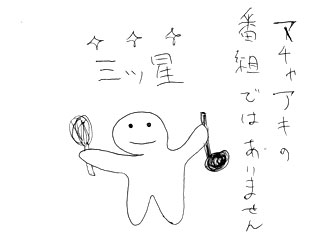 マチャアキの
番組ではありません
三ツ星